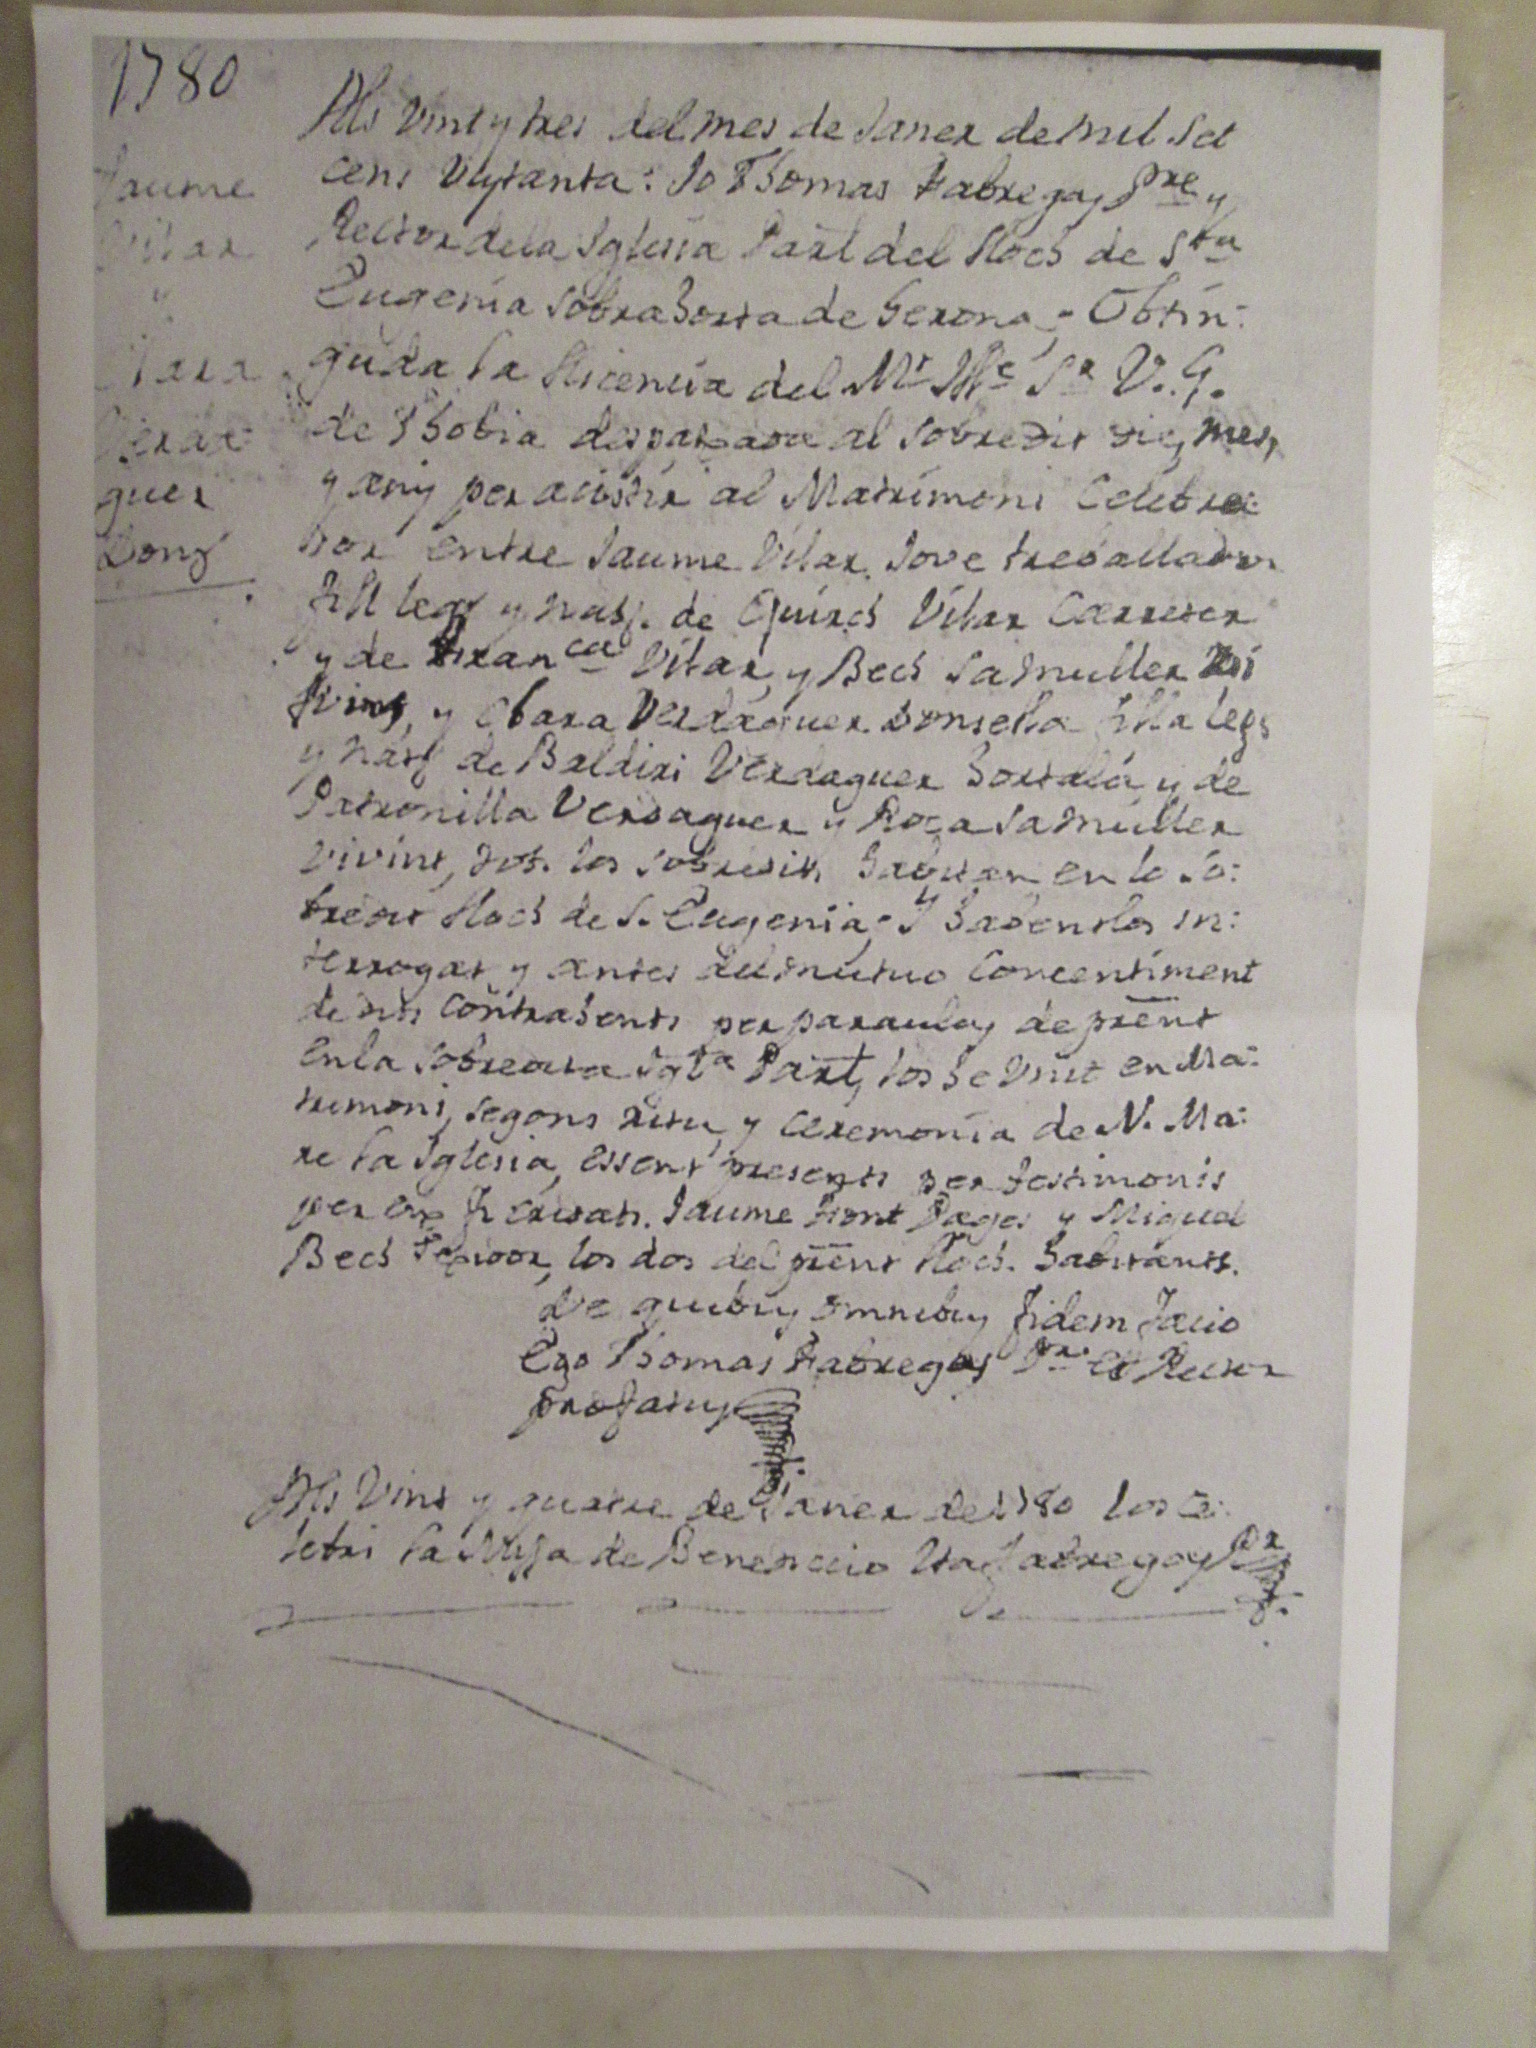 1780
Jaume
Vilar
y
Clara
Verda=
guer
Donz.ª
Als Vint y tres del mes de Janer de mil set
cens Vuytanta: Jo Thomas Fabregas Pre y
Rector de la Iglesia Parl del lloch de Sta
Eugenia sobra horta de Gerona,- Obtin=
guda la llicencia del Mt Iltre Sr V. G.
de Thobia despatxada al sobredit die, mes,
y any per acistir al Matrimoni Celebra=
dor entre Jaume Vilar Jove treballador
fill legm y natl. de Quirch Vilar Carreter
y de Franca Vilar, y Bech sa muller
vivins, y Clara Verdaguer Donsella filla legm
y natl de Baldiri Verdaguer hortolá, y de
Petronilla Verdaguer y Roca sa muller
vivint, tots los sobredits habitan en lo so=
bredit lloch de S. Eugenia,- Y haventlos in=
terrogat y antes del mutuo Concentiment
de dits contrahents per paraulas de prent
en la sobredita Igla Parl, los he Unit en Ma=
trimoni, segons ritu, y ceremonia de N. Ma=
re la Iglesia, essent presents per testimonis
per est fi cridats. Jaume Font Pages y Miquel
Bech Texidor, los dos del prent lloch. habitants.
De quibus omnibus fidem facio
Ego Thomas Fabregas Pr. et Rector
prefatus
Als Vint y quatre de Janer de 1780 los ce=
lebri la Missa de Benedicio Ita Fabregas Pr